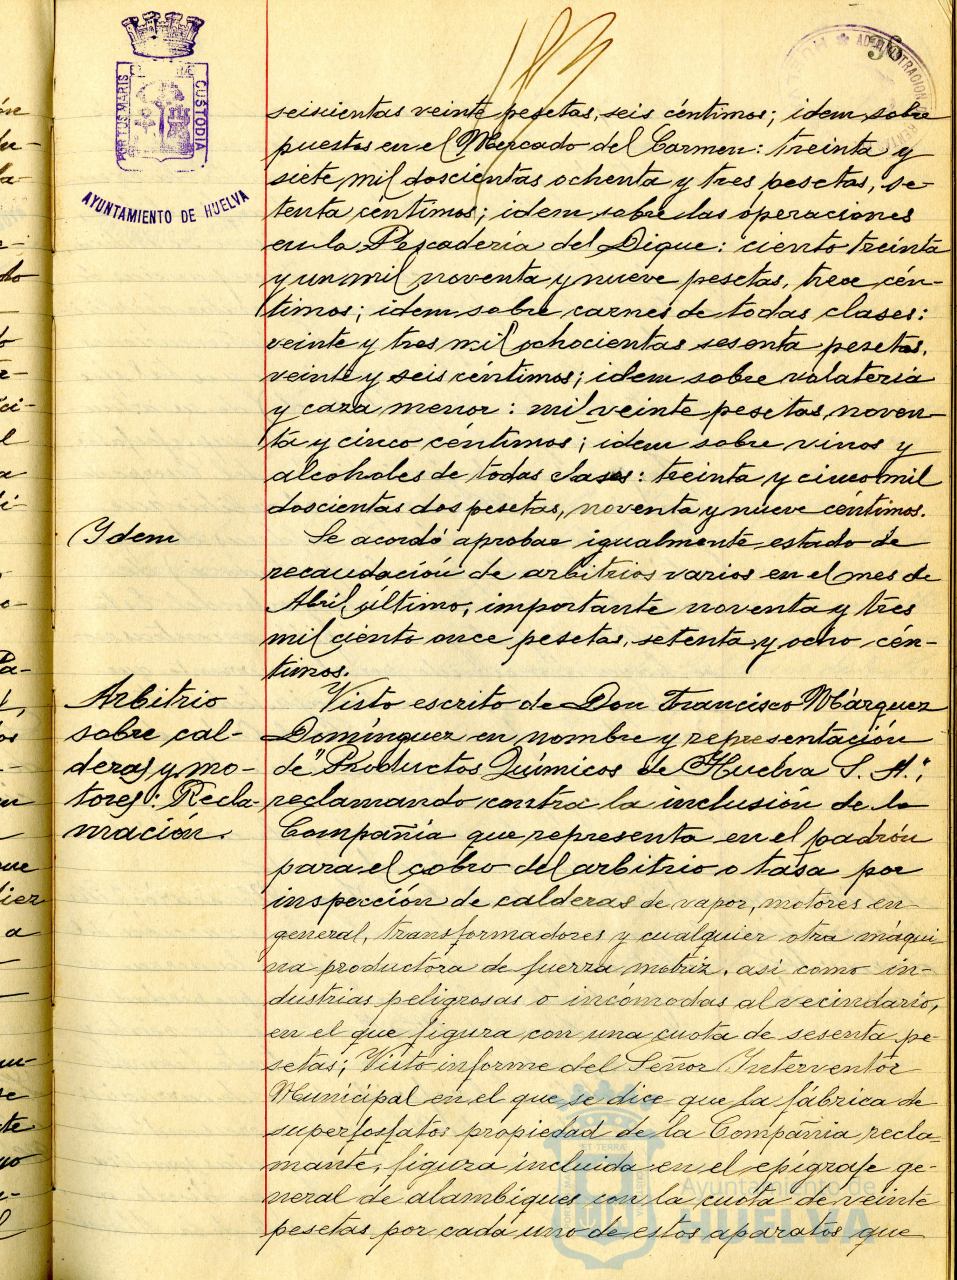 183
36
ADMINISTRACION
PORTUS MARIS
CUSTODIA
AYUNTAMIENTO DE HUELVA
seiscientas veinte pesetas, seis céntimos; idem sobre
puestos en el Mercado del Carmen: treinta y
siete mil doscientas ochenta y tres pesetas, se-
tenta céntimos; idem sobre las operaciones
en la Pescadería del Dique: ciento treinta
y un mil noventa y nueve pesetas, trece cén-
timos; idem sobre carnes de todas clases:
veinte y tres mil ochocientas sesenta pesetas,
veinte y seis céntimos; idem sobre volatería
y caza menor: mil veinte pesetas, noven-
ta y cinco céntimos; idem sobre vinos y
alcoholes de todas clases: treinta y cinco mil
doscientas dos pesetas, noventa y nueve céntimos.
Ydem
Se acordó aprobar igualmente estado de
recaudación de arbitrios varios en el mes de
Abril último, importante noventa y tres
mil ciento once pesetas, setenta y ocho cén-
timos.
Arbitrio
sobre cal-
deras y mo-
tores: Recla-
mación.
Visto escrito de Don Francisco Márquez
Domínguez en nombre y representación
de "Productos Químicos de Huelva S. A.",
reclamando contra la inclusión de la
Compañía que representa en el padrón
para el cobro del arbitrio o tasa por
inspección de calderas de vapor, motores en
general, transformadores y cualquier otra máqui-
na productora de fuerza motriz, asi como in-
dustrias peligrosas o incómodas al vecindario,
en el que figura con una cuota de sesenta pe-
setas; Visto informe del Señor Interventor
Municipal en el que se dice que la fábrica de
superfosfatos propiedad de la Compañia recla-
mante, figura incluida en el epígrafe ge-
neral de alambiques con la cuota de veinte
pesetas por cada uno de estos aparatos que
Ayuntamiento de
HUELVA